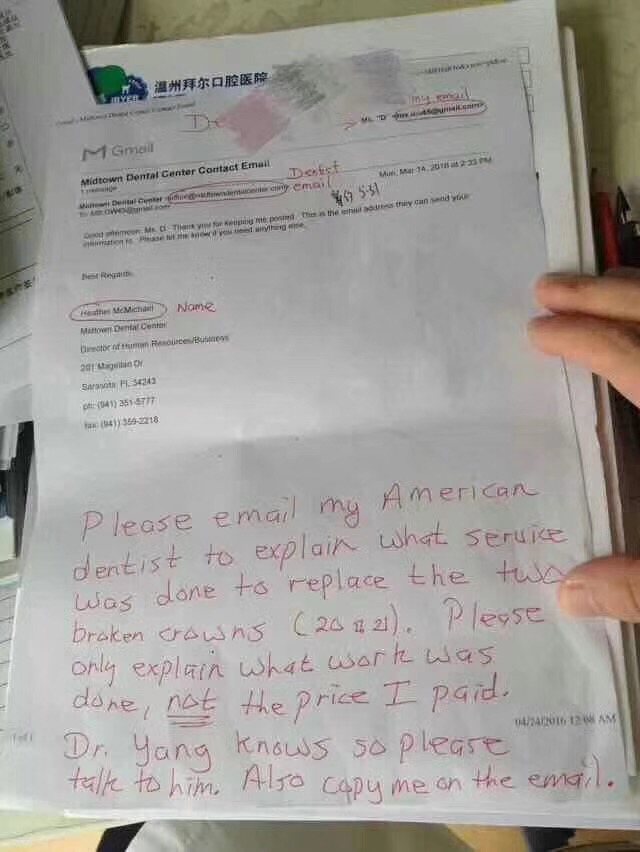 温州拜尔口腔医院
my email
Gmail
Midtown Dental Center Contact Email
1 message
Dentist
email
Mon, Mar 14, 2016 at 2:33 PM
Midtown Dental Center
Good afternoon, Ms. D. Thank you for keeping me posted. This is the email address they can send your
information to. Please let me know if you need anything else.
Best Regards,
Heather McMichael Name
Midtown Dental Center
Director of Human Resources/Business
201 Magellan Dr
Sarasota, FL 34243
ph: (941) 351-5777
fax: (941) 359-2218
Please email my American
dentist to explain what service
was done to replace the two
broken crowns (20 & 21). Please
only explain what work was
done, not the price I paid.
04/24/2016 12:08 AM
Dr. Yang knows so please
talk to him. Also copy me on the email.